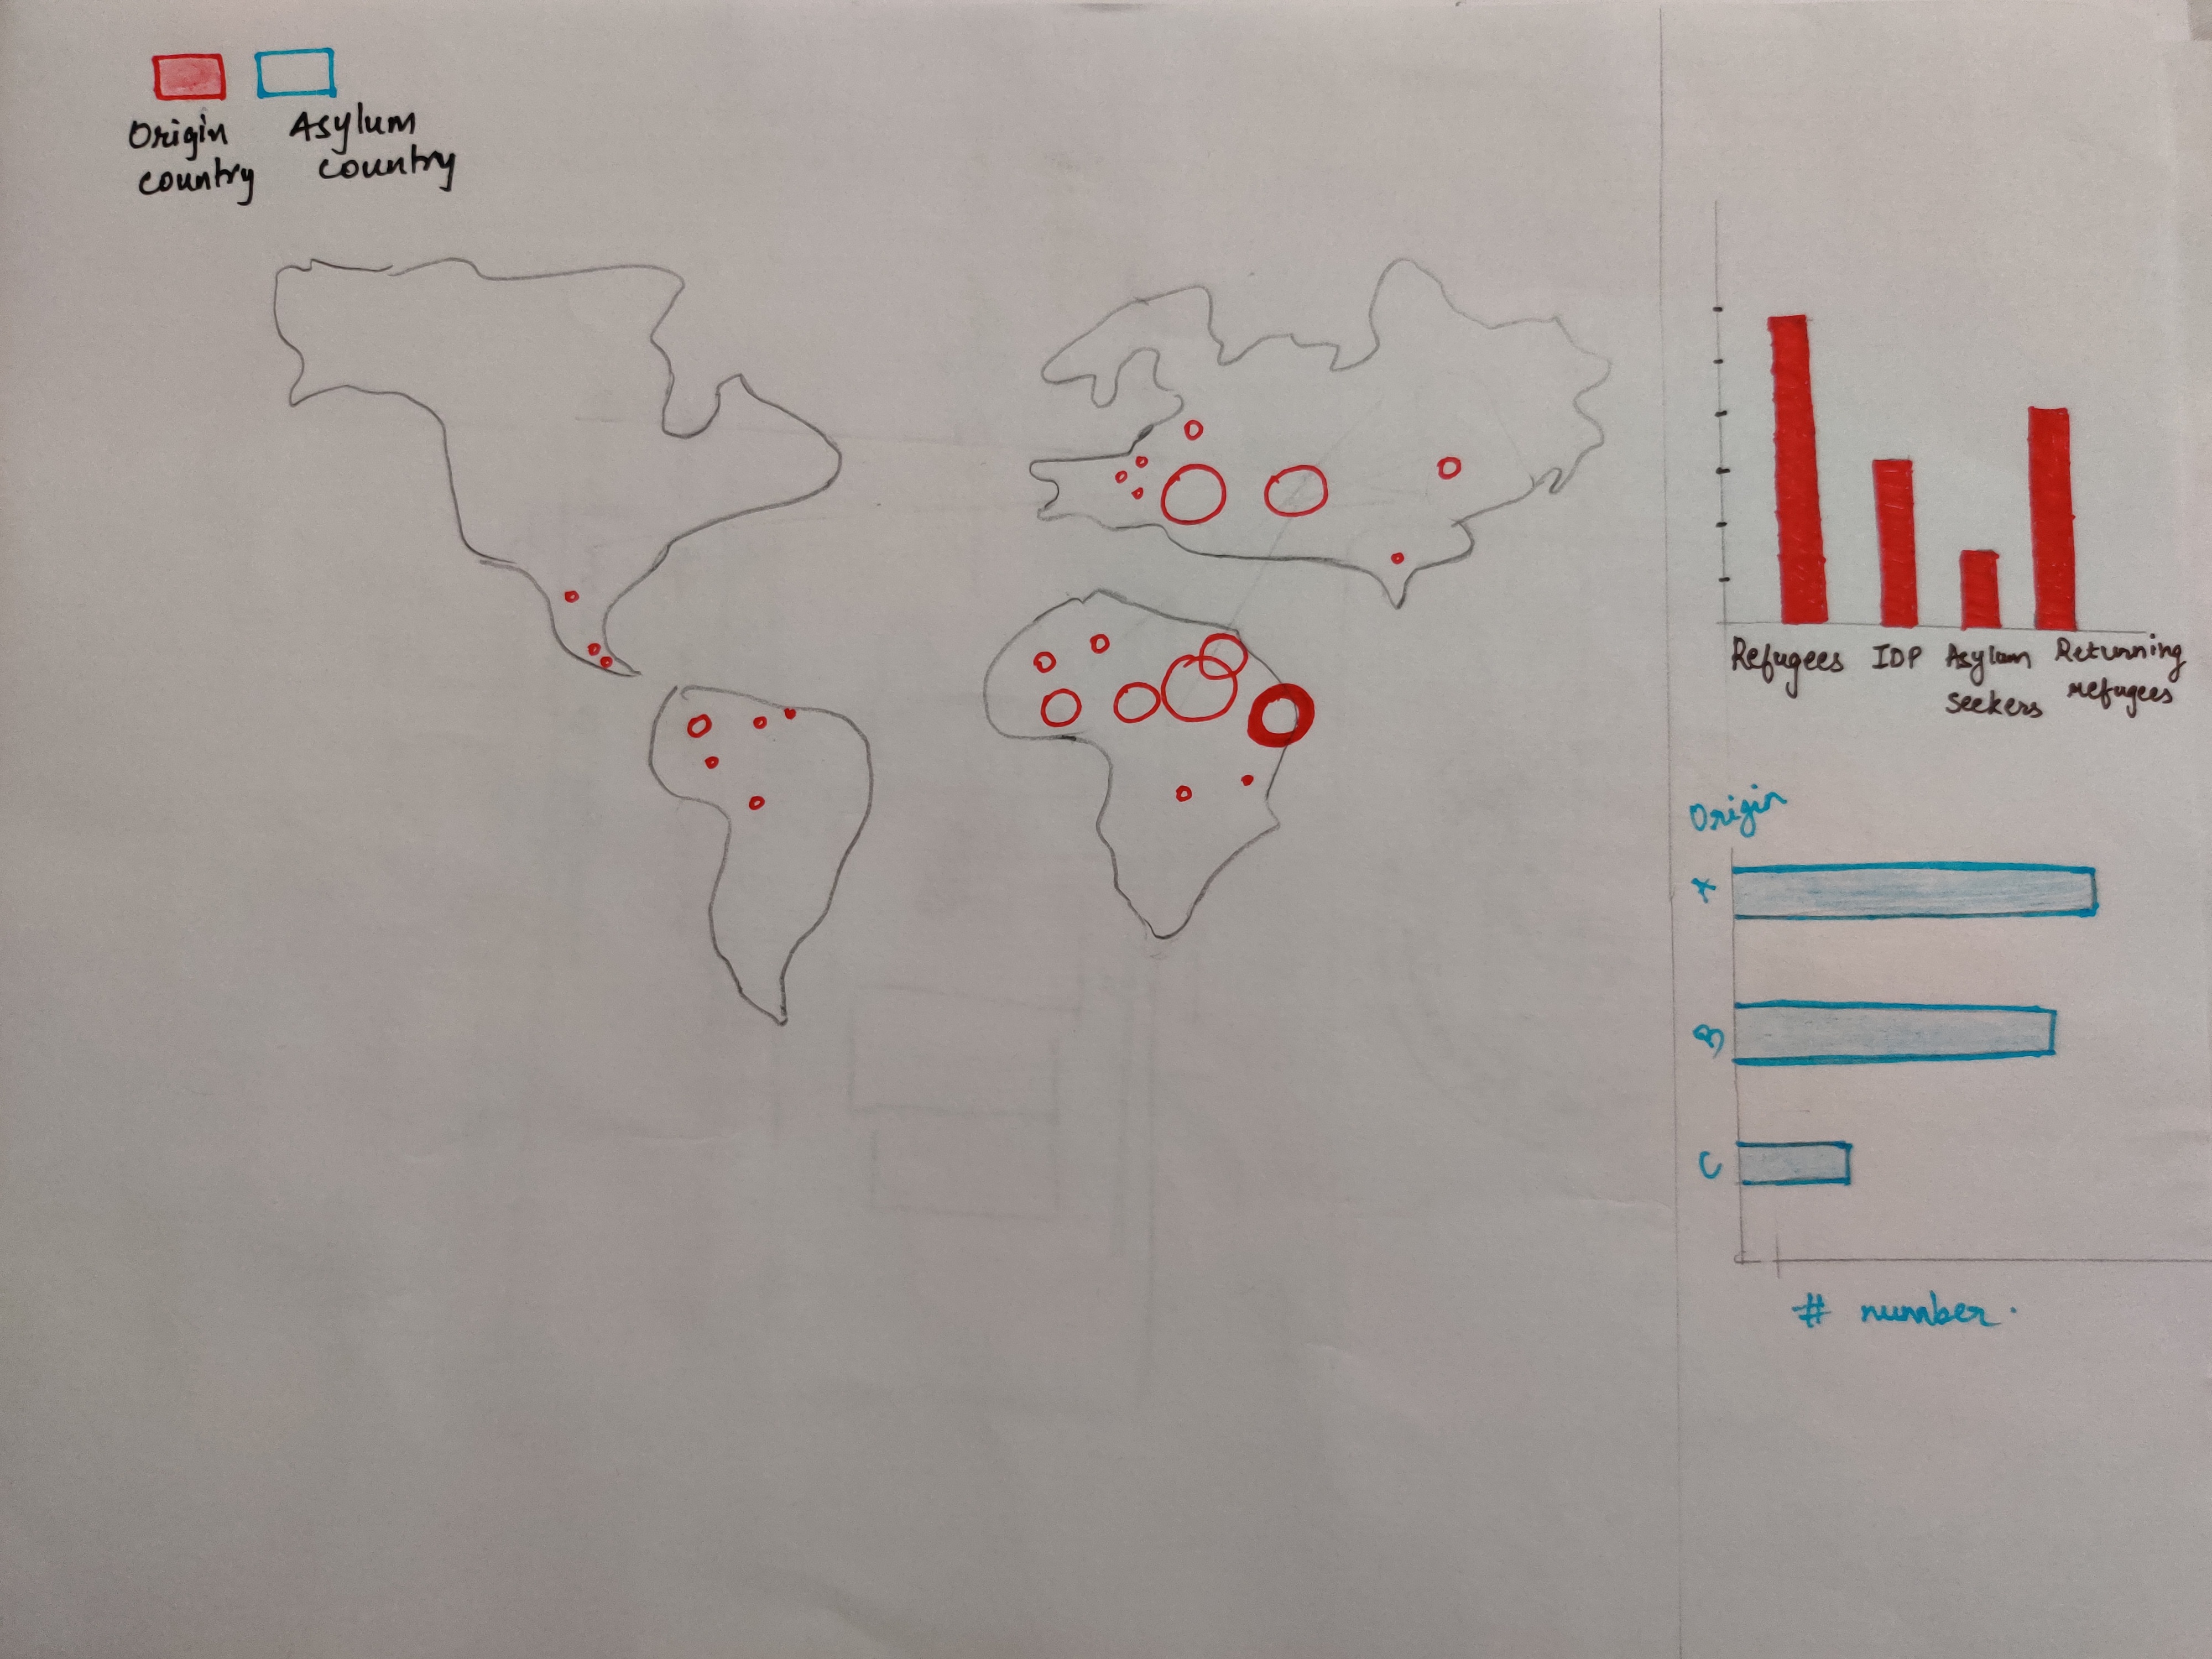 Origin country
Asylum country
Refugees
IDP
Asylum seekers
Returning refugees
Origin
A
B
C
# number.